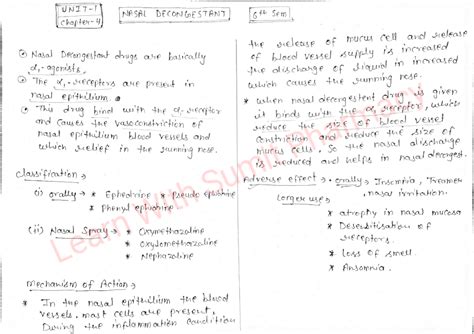 UNIT-1
Chapter-4
NASAL DECONGESTANT
6th Sem
Nasal Decongestant drugs are basically
α1-agonists.
The α1-receptors are present in
nasal epithilium.
This drug bind with the α1-receptor
and causes the vasoconstriction of
nasal epithilium blood vessels and
which relief in the running nose.
Classification:
(i) orally → * Ephedrine * Pseudo ephidrine
* Phenyl ephidrine
(ii) Nasal Spray → * Oxymethazoline
* Oxylomethazoline
* Nephazoline
Mechanism of Action:
* In the nasal epithilium the blood
vessels, mast cells are present,
During the inflammation condition
the release of mucus cell and release
of blood vessel supply is increased
the discharge of liquid in increased
which causes the running nose.
* when nasal decongestent drug is given
it binds with the α1 receptor which
reduce the size of blood vessel
constriction and reduce the size of
mucus cells. So the nasal discharge
is reduced and helps in nasal decongest.
Adverse effect → orally: Insomnia, Treamer
nasal irritation.
Larger use:
* atrophy in nasal mucosa
* Desensitisation of
receptors.
* loss of smell.
* Ansomnia.
Learn With Sumit